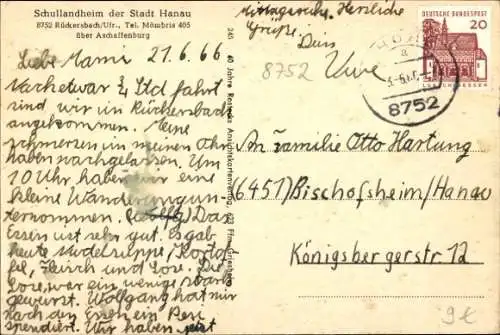 Schullandheim der Stadt Hanau
8752 Rückersbach/Ufr., Tel. Mömbris 405
über Aschaffenburg
Liebe Mami 21.6.66
Nach etwa ¾ Std fahrt
sind wir in Rückersbach
angekommen. Meine
schmerzen in meinen Ohr
haben nachgelassen. Um
10 Uhr haben wir eine
kleine Wanderung un-
ternommen. Das
Essen ist sehr gut. Es gab
heute Nudelsuppe, Kartof
fel, Fleisch und Sose. Die
Sose war ein wenig stark
gewürzt. Wolfgang hat mir
nach dem Essen ein
spendiert. Wir haben jetzt
Mittagsruhe. Herzliche
Grüße.
Dein
Uwe
8752
245 40 Jahre Ansichtskartenverlag, 623
DEUTSCHE BUNDESPOST
20
8752
An Familie Otto Hartung
(6451) Bischofsheim/Hanau
Königsbergerstr 12
9€